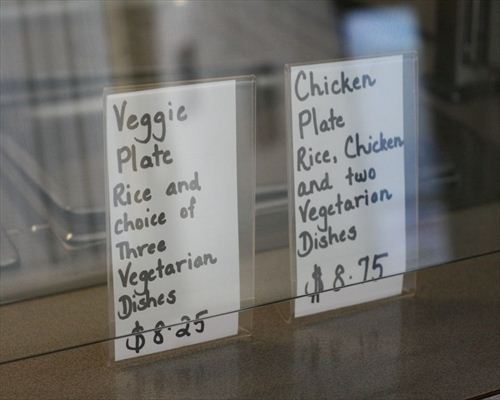 Veggie
Plate
Rice and
choice of
Three
Vegetarian
Dishes
$8.25
Chicken
Plate
Rice, Chicken
and two
Vegetarian
Dishes
$8.75